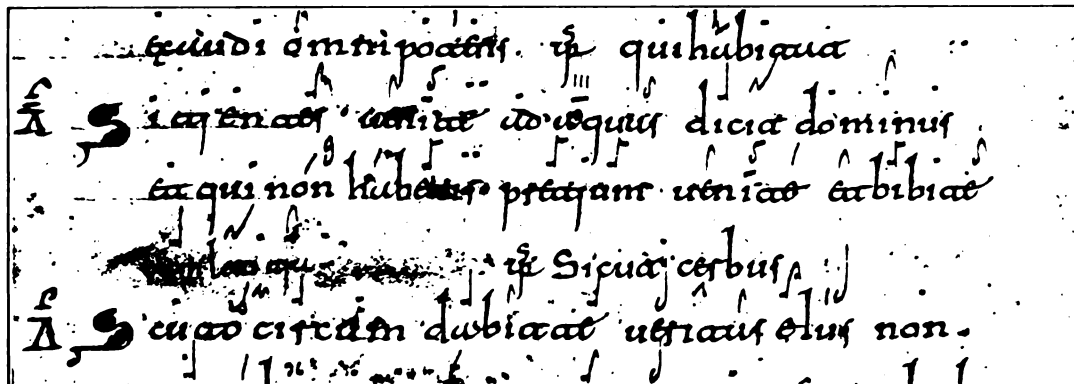 omnipotentis. ps qui habitat
A Sitientes uenite ad aquas dicit dominus
et qui non habetis pretium uenite et bibite
ps Sicut cerbus
A Scuto circum dabit te ueritas eius non